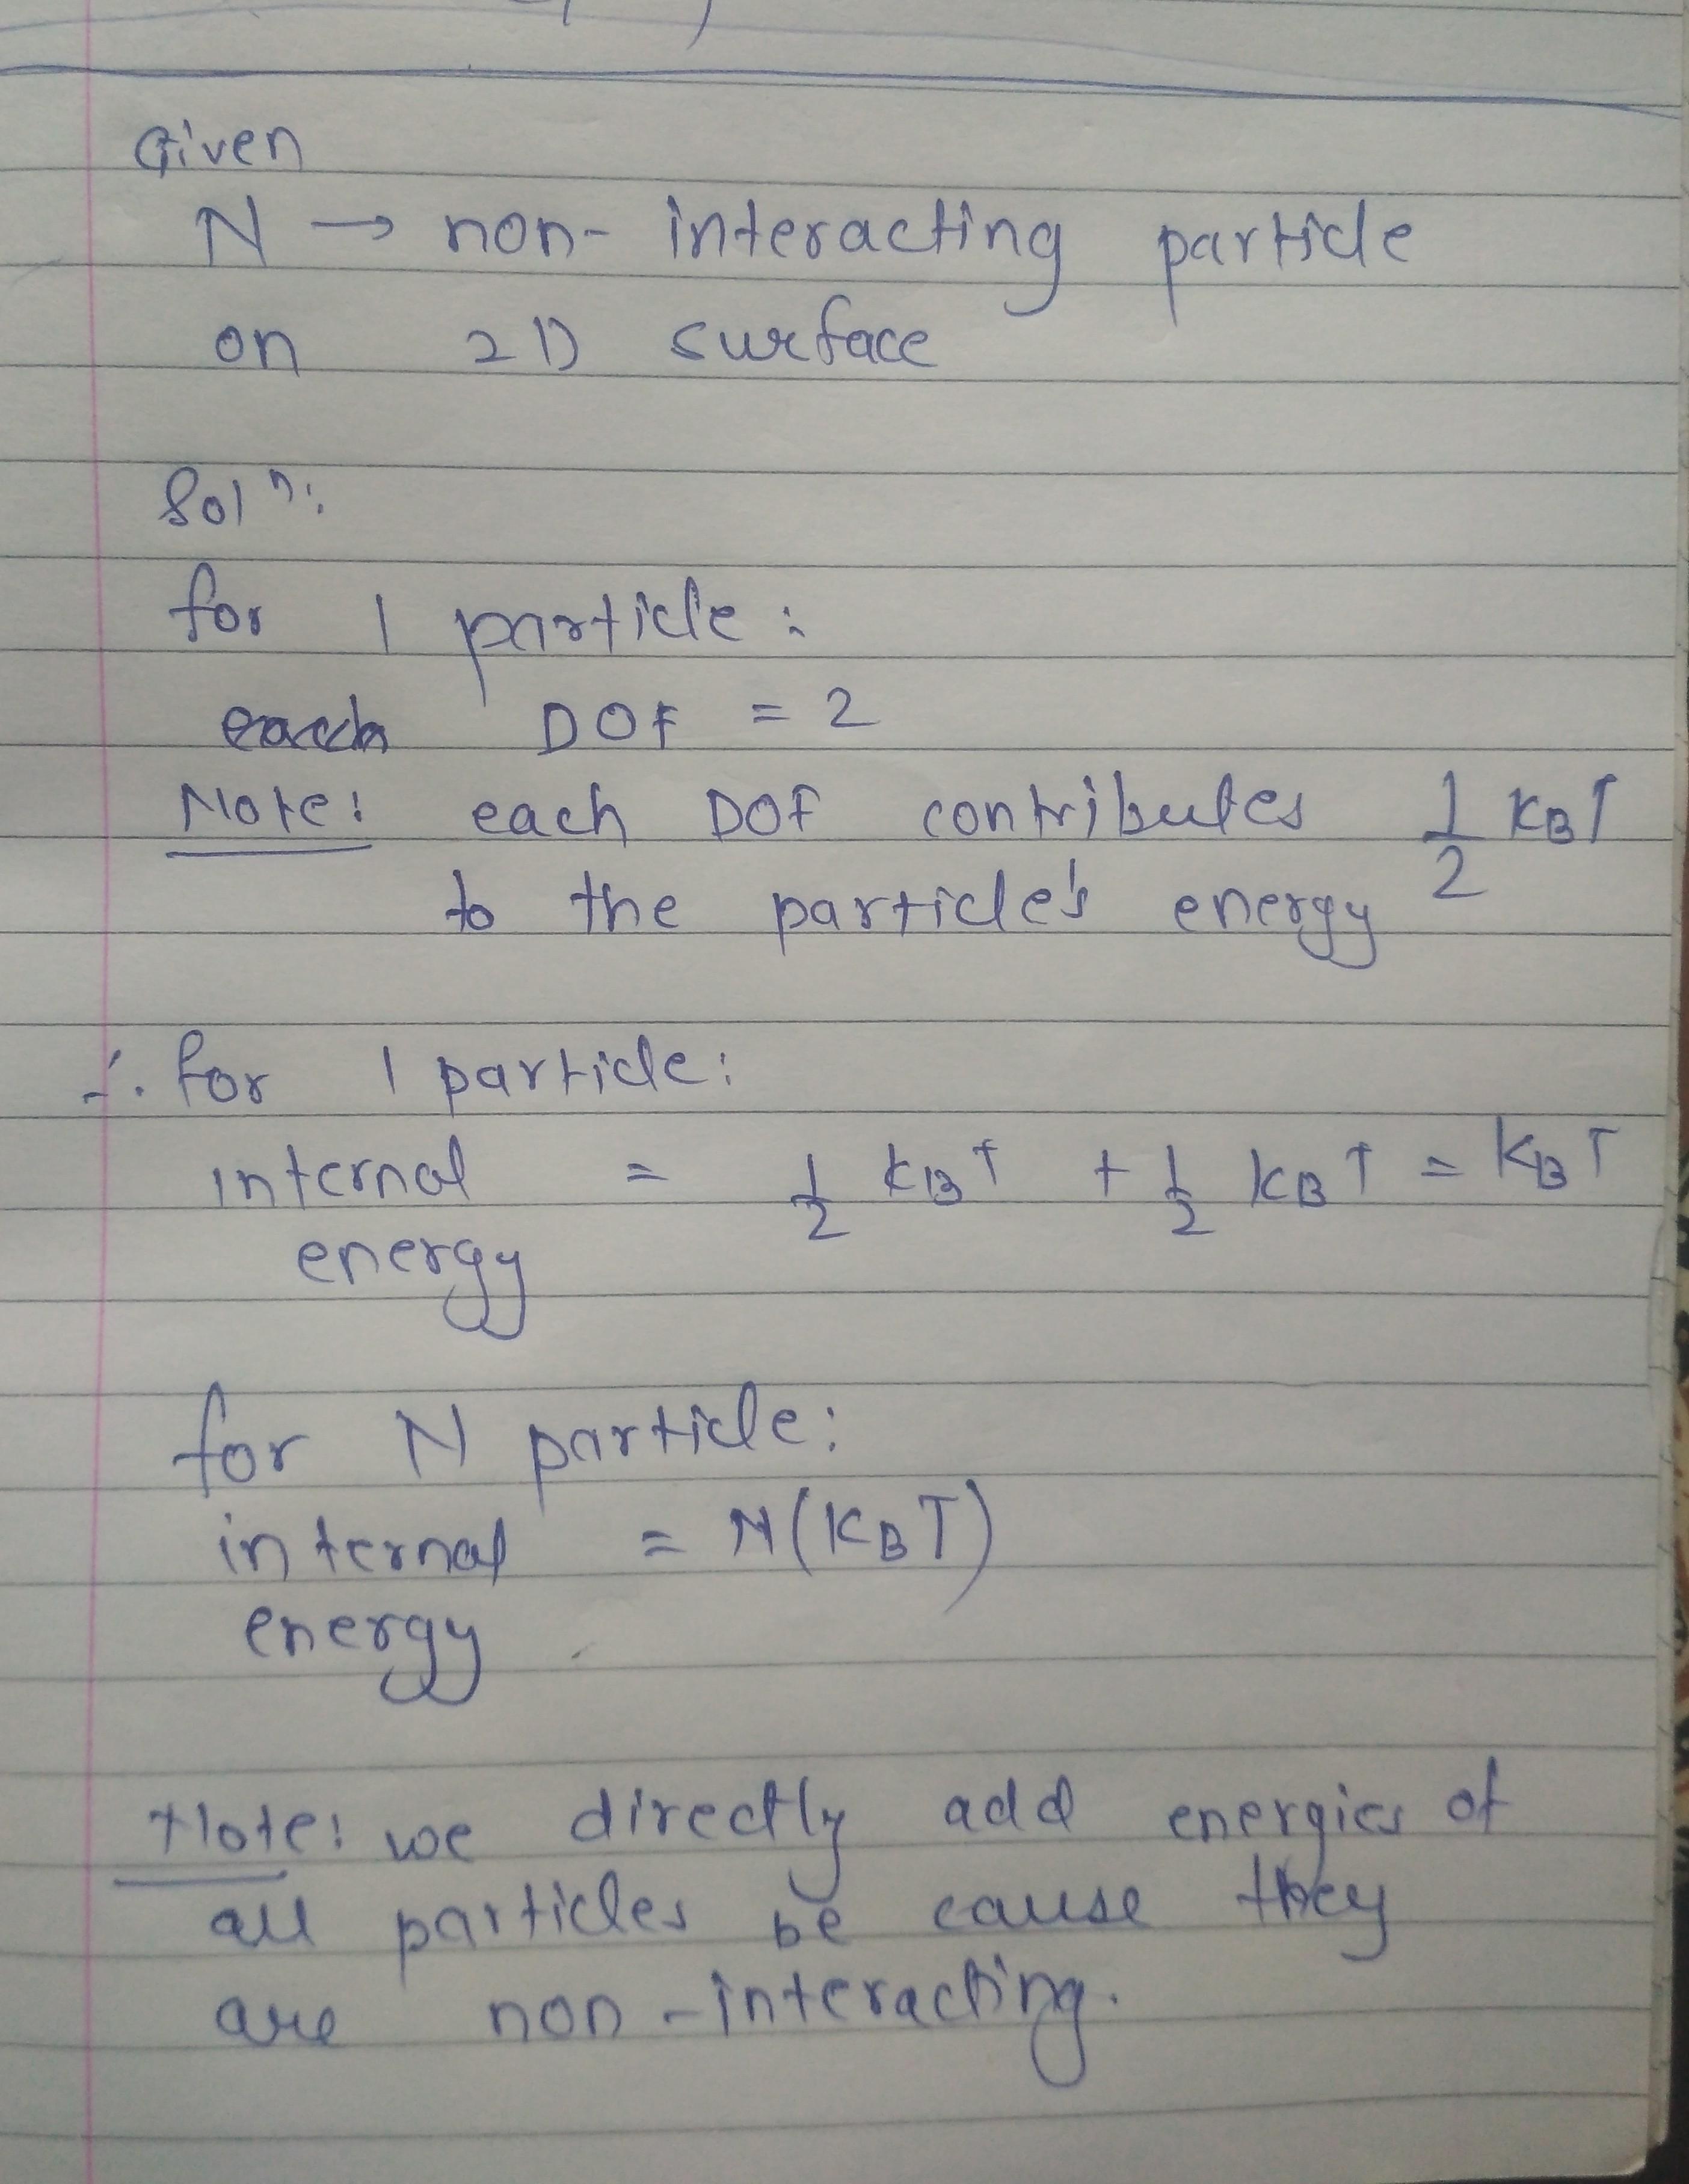 Given
N → non-interacting particle
on 2D surface
Solⁿ:
for 1 particle:
each DOF = 2
Note: each DOF contributes 1/2 KBT
to the particle's energy
∴ for 1 particle:
internal energy = 1/2 KBT + 1/2 KBT = KBT
for N particle:
internal energy = N(KBT)
Note: we directly add energies of
all particles be cause they
are non-interacting.